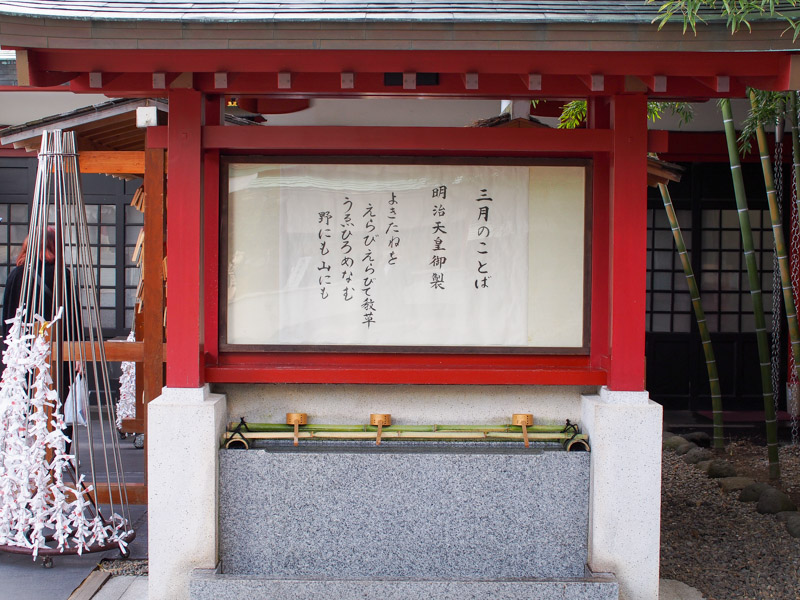 三月のことば
明治天皇御製
よきたねを
えらびえらびて教草
うゑひろめなむ
野にも山にも